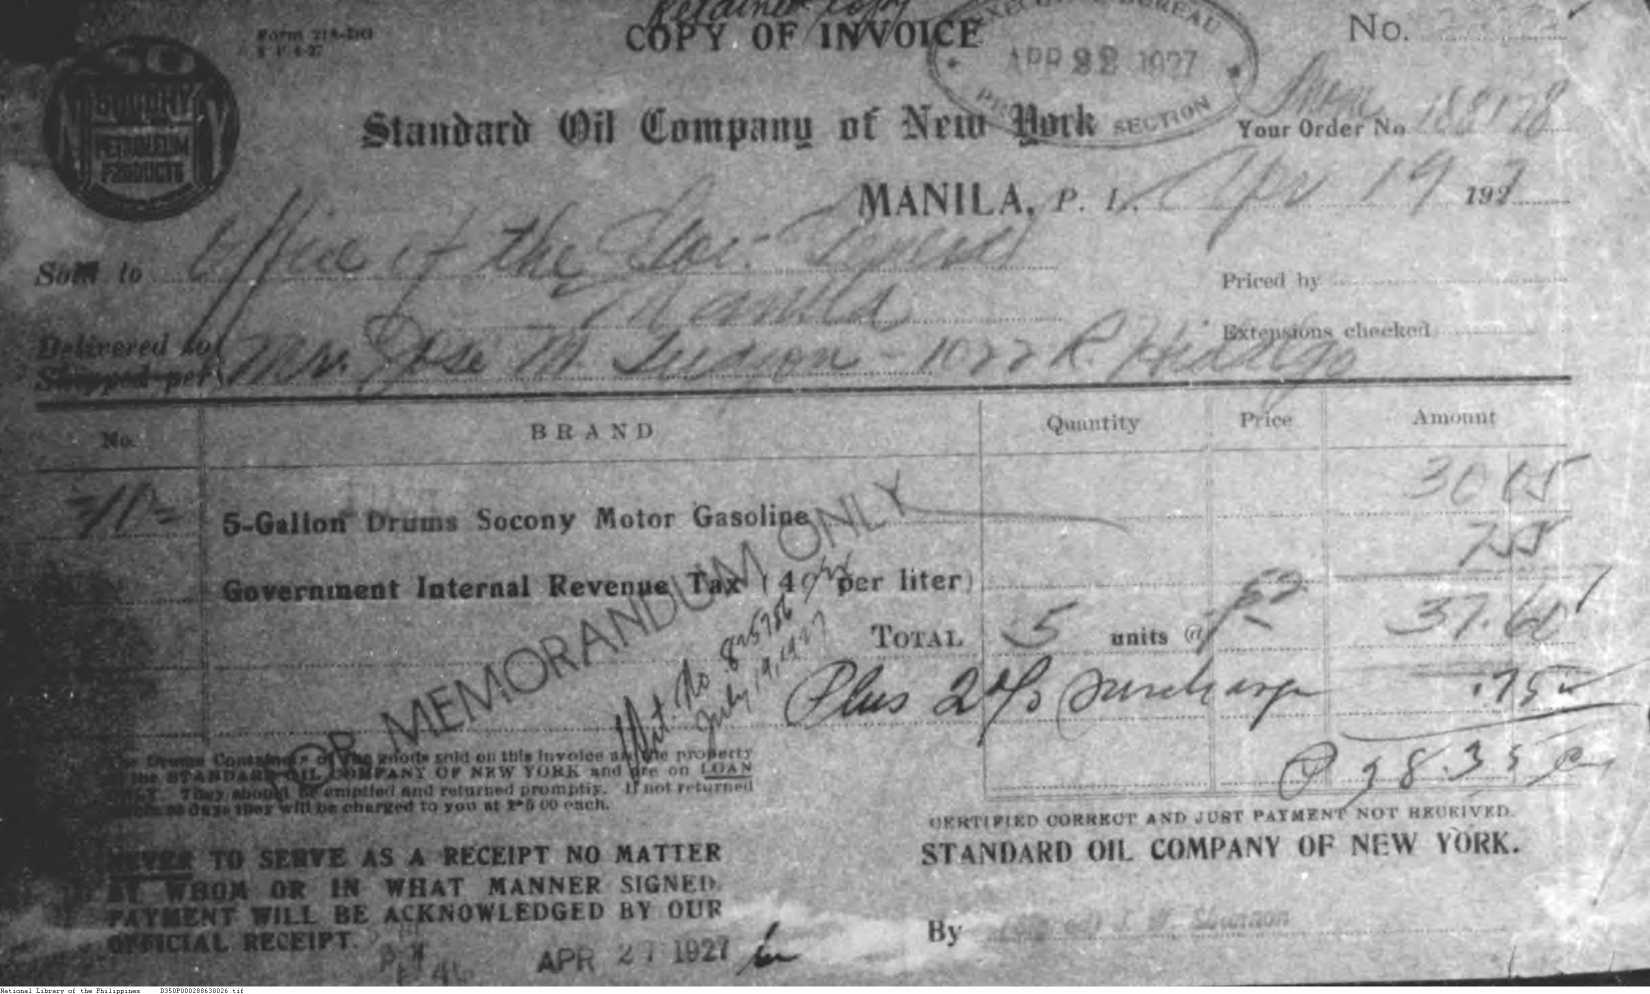 Retained Copy
Form 218-DG
COPY OF INVOICE
No.
EXECUTIVE BUREAU
APR 22 1927
SECTION
SO
SOCONY
N Y
PETROLEUM
PRODUCTS
Standard Oil Company of New York
Phone 188178
Your Order No
MANILA, P. I. Apr 19 1927
Sold to Office of the Gov. General
Manila
Priced by
Extensions checked
Delivered to Mr. Jose M. - 1022 R. Hidalgo
Shipped per
No. BRAND Quantity Price Amount
5-Gallon Drums Socony Motor Gasoline
Government Internal Revenue Tax (4 per liter)
7.55
TOTAL 5 units @ 37.60
Plus 2% surcharge .75
₱ 38.35
FOR MEMORANDUM ONLY
Wt. No 825786
July 19, 1927
The Drums Containers of the goods sold on this invoice are the property
of the STANDARD OIL COMPANY OF NEW YORK and are on LOAN
ONLY. They should be emptied and returned promptly. If not returned
days they will be charged to you at ₱5.00 each.
CERTIFIED CORRECT AND JUST PAYMENT NOT RECEIVED.
STANDARD OIL COMPANY OF NEW YORK.
NEVER TO SERVE AS A RECEIPT NO MATTER
BY WHOM OR IN WHAT MANNER SIGNED.
PAYMENT WILL BE ACKNOWLEDGED BY OUR
OFFICIAL RECEIPT.
By (Signed) J. W. Shannon
APR 27 1927
National Library of the Philippines D350P000288638026.tif